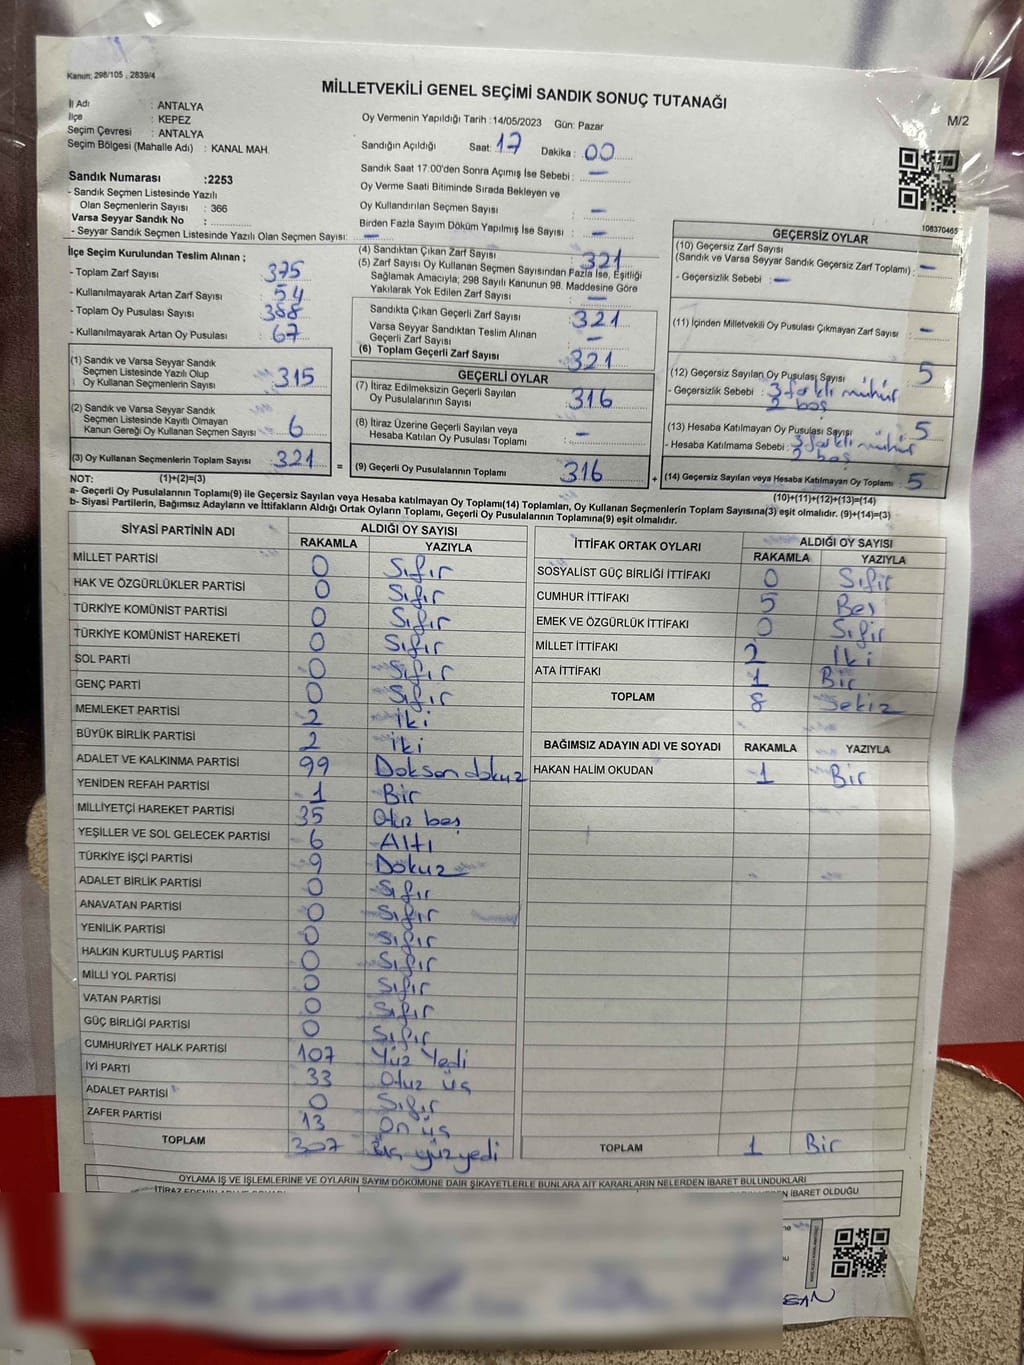 Kanun; 298/105 ; 2839/4
MİLLETVEKİLİ GENEL SEÇİMİ SANDIK SONUÇ TUTANAĞI
M/2
İl Adı : ANTALYA
İlçe : KEPEZ
Seçim Çevresi : ANTALYA
Seçim Bölgesi (Mahalle Adı) : KANAL MAH.
Sandık Numarası :2253
- Sandık Seçmen Listesinde Yazılı
Olan Seçmenlerin Sayısı : 366
Varsa Seyyar Sandık No :
- Seyyar Sandık Seçmen Listesinde Yazılı Olan Seçmen Sayısı: —
Oy Vermenin Yapıldığı Tarih :14/05/2023 Gün: Pazar
Sandığın Açıldığı Saat: 17 Dakika : 00
Sandık Saat 17:00'den Sonra Açımış İse Sebebi : —
Oy Verme Saati Bitiminde Sırada Bekleyen ve
Oy Kullandırılan Seçmen Sayısı : —
Birden Fazla Sayım Döküm Yapılmış İse Sayısı : —
108370465
İlçe Seçim Kurulundan Teslim Alınan ;
- Toplam Zarf Sayısı : 375
- Kullanılmayarak Artan Zarf Sayısı : 54
- Toplam Oy Pusulası Sayısı : 388
- Kullanılmayarak Artan Oy Pusulası : 67
(1) Sandık ve Varsa Seyyar Sandık
Seçmen Listesinde Yazılı Olup
Oy Kullanan Seçmenlerin Sayısı : 315
(2) Sandık ve Varsa Seyyar Sandık
Seçmen Listesinde Kayıtlı Olmayan
Kanun Gereği Oy Kullanan Seçmen Sayısı : 6
(3) Oy Kullanan Seçmenlerin Toplam Sayısı : 321 =
(4) Sandıktan Çıkan Zarf Sayısı : 321
(5) Zarf Sayısı Oy Kullanan Seçmen Sayısından Fazla İse, Eşitliği
Sağlamak Amacıyla; 298 Sayılı Kanunun 98. Maddesine Göre
Yakılarak Yok Edilen Zarf Sayısı : —
Sandıkta Çıkan Geçerli Zarf Sayısı : 321
Varsa Seyyar Sandıktan Teslim Alınan
Geçerli Zarf Sayısı : —
(6) Toplam Geçerli Zarf Sayısı : 321
GEÇERLİ OYLAR
(7) İtiraz Edilmeksizin Geçerli Sayılan
Oy Pusulalarının Sayısı : 316
(8) İtiraz Üzerine Geçerli Sayılan veya
Hesaba Katılan Oy Pusulası Toplamı : —
(9) Geçerli Oy Pusulalarının Toplamı : 316 +
GEÇERSİZ OYLAR
(10) Geçersiz Zarf Sayısı
(Sandık ve Varsa Seyyar Sandık Geçersiz Zarf Toplamı) : —
- Geçersizlik Sebebi : —
(11) İçinden Milletvekili Oy Pusulası Çıkmayan Zarf Sayısı : —
(12) Geçersiz Sayılan Oy Pusulası Sayısı : 5
- Geçersizlik Sebebi : 3 farklı mühür
2 boş
(13) Hesaba Katılmayan Oy Pusulası Sayısı : 5
- Hesaba Katılmama Sebebi : 3 farklı mühür
2 boş
(14) Geçersiz Sayılan veya Hesaba Katılmayan Oy Toplamı : 5
NOT: (1)+(2)=(3) (10)+(11)+(12)+(13)=(14)
a- Geçerli Oy Pusulalarının Toplamı(9) ile Geçersiz Sayılan veya Hesaba katılmayan Oy Toplamı(14) Toplamları, Oy Kullanan Seçmenlerin Toplam Sayısına(3) eşit olmalıdır. (9)+(14)=(3)
b- Siyasi Partilerin, Bağımsız Adayların ve İttifakların Aldığı Ortak Oyların Toplamı, Geçerli Oy Pusulalarının Toplamına(9) eşit olmalıdır.
SİYASİ PARTİNİN ADI ALDIĞI OY SAYISI
RAKAMLA YAZIYLA
MİLLET PARTİSİ 0 Sıfır
HAK VE ÖZGÜRLÜKLER PARTİSİ 0 Sıfır
TÜRKİYE KOMÜNİST PARTİSİ 0 Sıfır
TÜRKİYE KOMÜNİST HAREKETİ 0 Sıfır
SOL PARTİ 0 Sıfır
GENÇ PARTİ 0 Sıfır
MEMLEKET PARTİSİ 2 iki
BÜYÜK BİRLİK PARTİSİ 2 iki
ADALET VE KALKINMA PARTİSİ 99 Doksan dokuz
YENİDEN REFAH PARTİSİ 1 Bir
MİLLİYETÇİ HAREKET PARTİSİ 35 Otuz beş
YEŞİLLER VE SOL GELECEK PARTİSİ 6 Altı
TÜRKİYE İŞÇİ PARTİSİ 9 Dokuz
ADALET BİRLİK PARTİSİ 0 Sıfır
ANAVATAN PARTİSİ 0 Sıfır
YENİLİK PARTİSİ 0 Sıfır
HALKIN KURTULUŞ PARTİSİ 0 Sıfır
MİLLİ YOL PARTİSİ 0 Sıfır
VATAN PARTİSİ 0 Sıfır
GÜÇ BİRLİĞİ PARTİSİ 0 Sıfır
CUMHURİYET HALK PARTİSİ 107 Yüz Yedi
İYİ PARTİ 33 Otuz üç
ADALET PARTİSİ 0 Sıfır
ZAFER PARTİSİ 13 On üç
TOPLAM 307 üç yüz yedi
İTTİFAK ORTAK OYLARI ALDIĞI OY SAYISI
RAKAMLA YAZIYLA
SOSYALİST GÜÇ BİRLİĞİ İTTİFAKI 0 Sıfır
CUMHUR İTTİFAKI 5 Beş
EMEK VE ÖZGÜRLÜK İTTİFAKI 0 Sıfır
MİLLET İTTİFAKI 2 İki
ATA İTTİFAKI 1 Bir
TOPLAM 8 Sekiz
BAĞIMSIZ ADAYIN ADI VE SOYADI RAKAMLA YAZIYLA
HAKAN HALİM OKUDAN 1 Bir
TOPLAM 1 Bir
OYLAMA İŞ VE İŞLEMLERİNE VE OYLARIN SAYIM DÖKÜMÜNE DAİR ŞİKAYETLERLE BUNLARA AİT KARARLARIN NELERDEN İBARET BULUNDUKLARI
N İBARET OLDUĞU